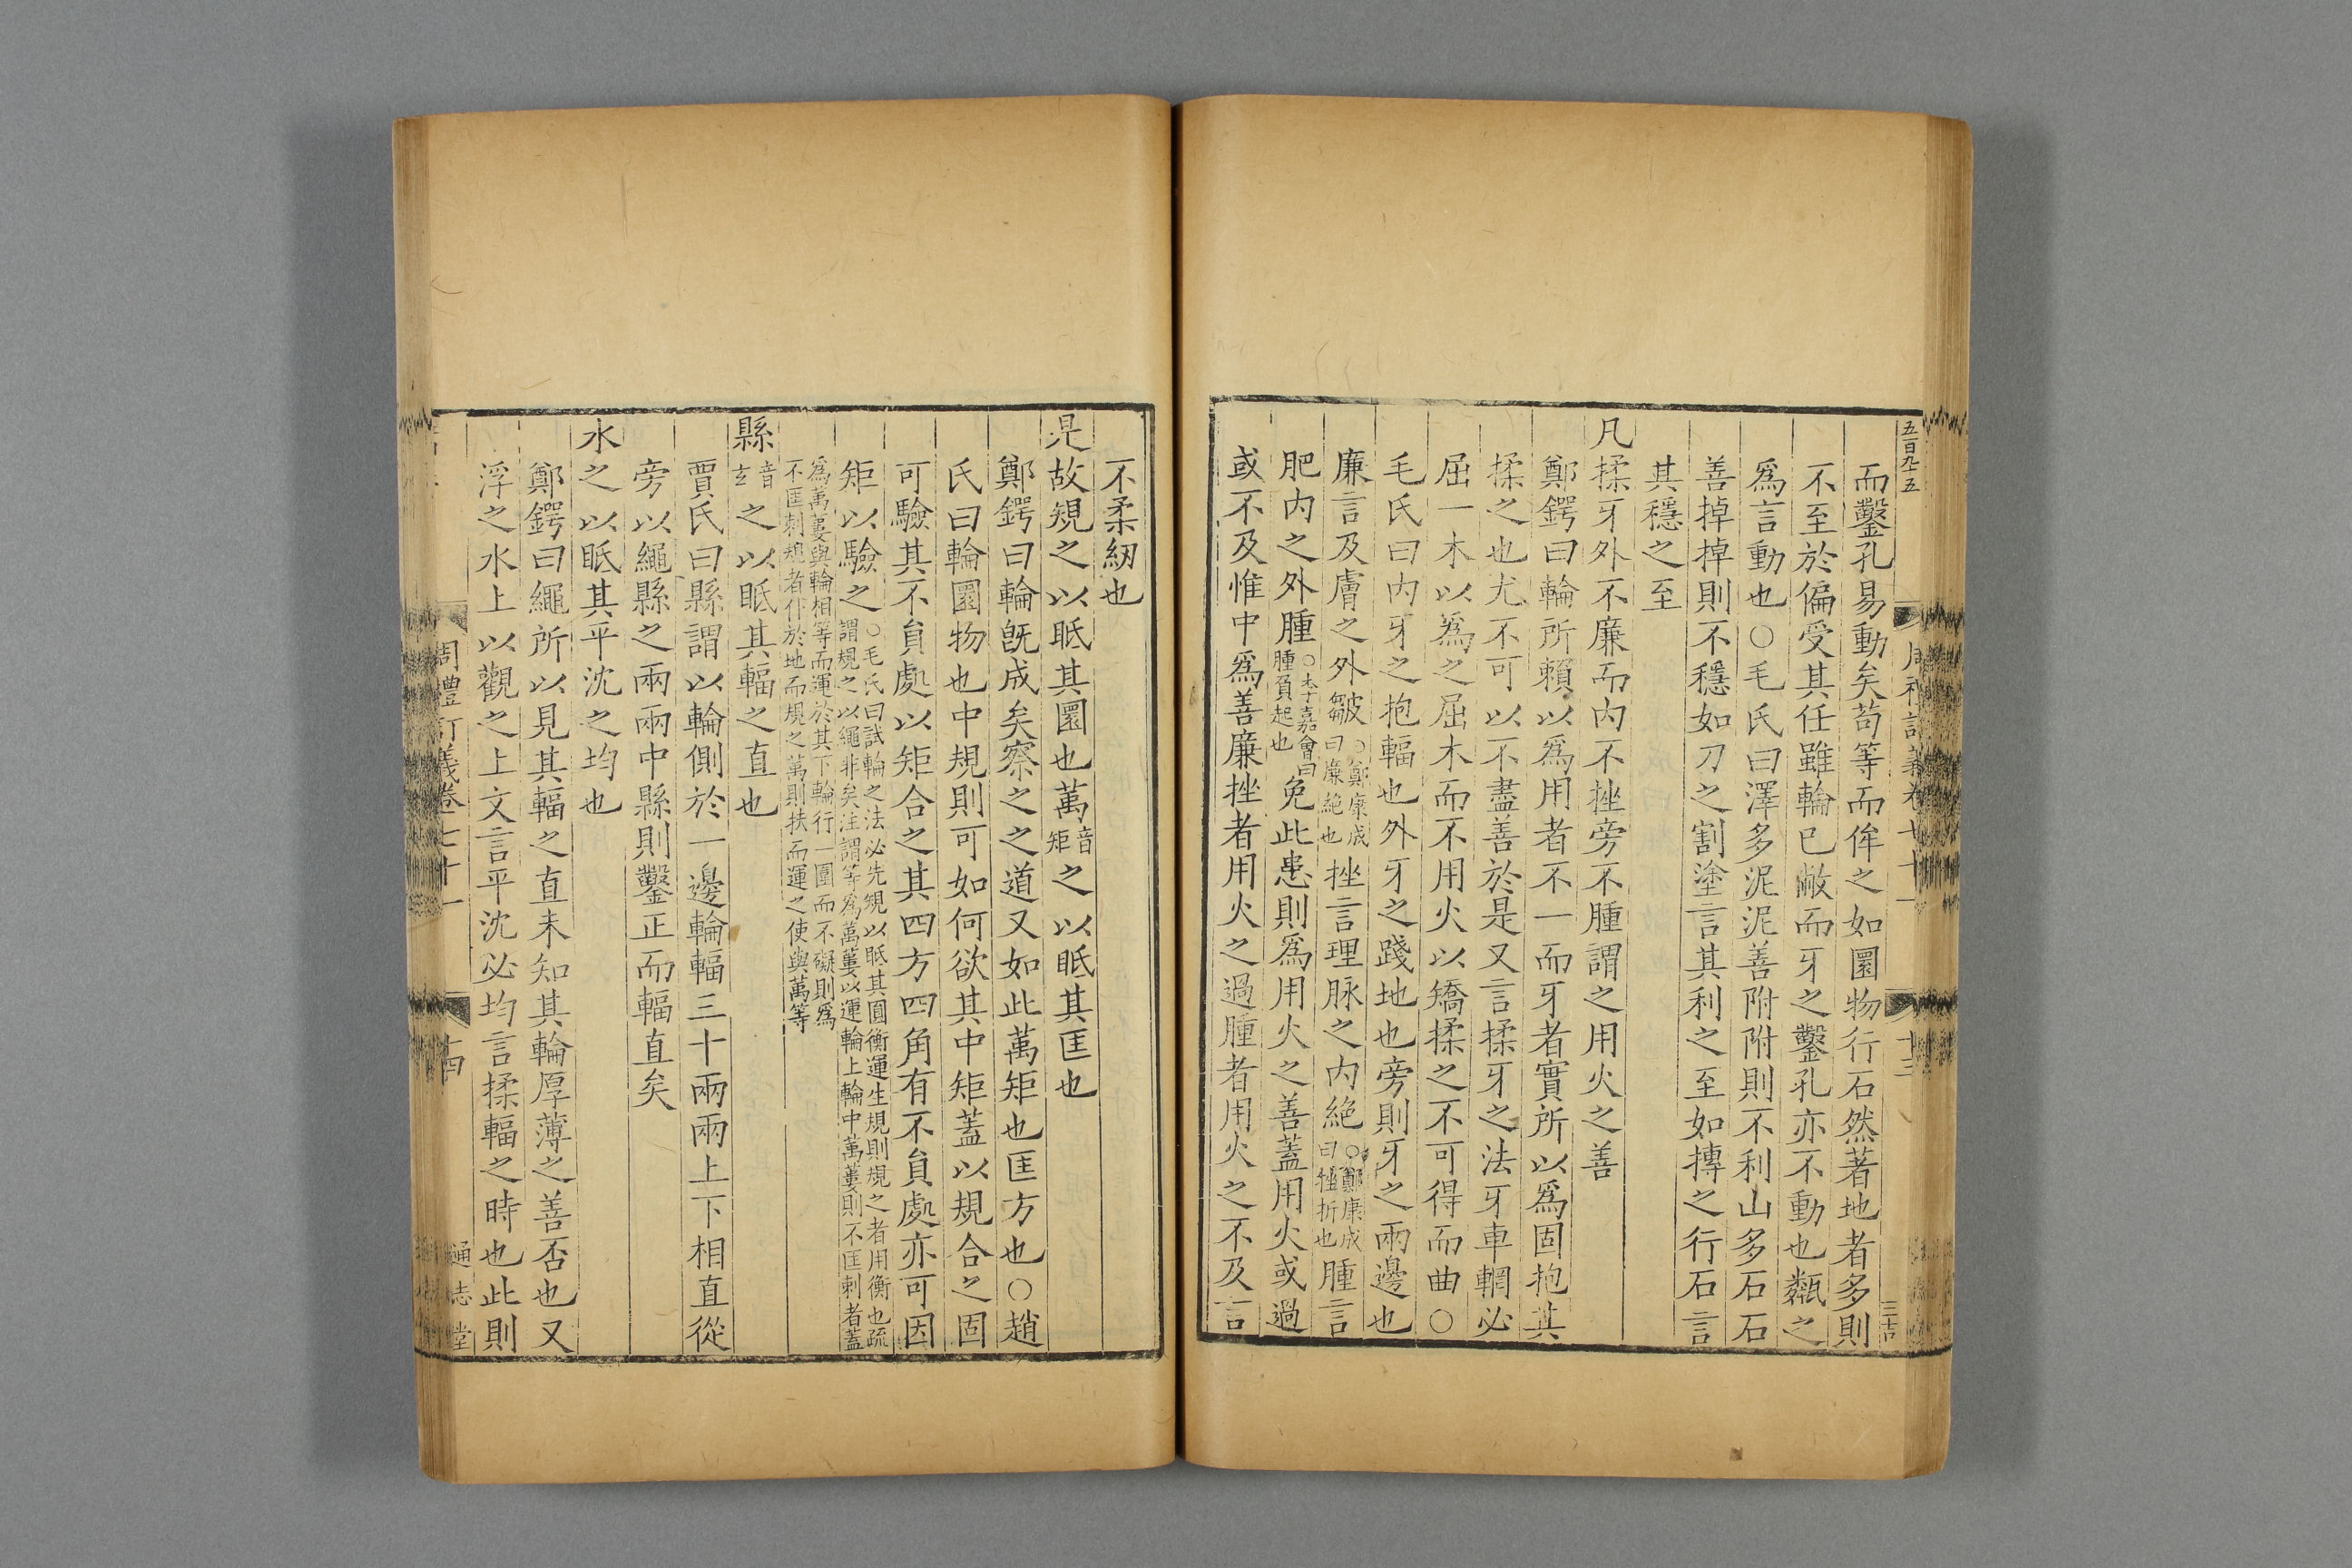 五百九十五
而鑿孔易動矣苟等而侔之如圜物行石然著地者多則
不至於偏受其任雖輪已敝而牙之鑿孔亦不動也甐之
爲言動也○毛氏曰澤多泥泥善附附則不利山多石石
善掉掉則不穩如刀之割塗言其利之至如摶之行石言
其穩之至
凡揉牙外不廉而内不挫旁不腫謂之用火之善
鄭鍔曰輪所賴以爲用者不一而牙者實所以爲固抱其
揉之也尤不可以不盡善於是又言揉牙之法牙車輞必
屈一木以爲之屈木而不用火以矯揉之不可得而曲○
毛氏曰内牙之抱輻也外牙之踐地也旁則牙之兩邊也
廉言及膚之外皺○鄭康成曰廉絶也挫言理脉之内絶○鄭康成曰挫折也腫言
肥内之外腫○李嘉會曰腫負起也免此患則爲用火之善蓋用火或過
或不及惟中爲善廉挫者用火之過腫者用火之不及言
不柔紉也
是故規之以眡其圜也萬音矩之以眡其匡也
鄭鍔曰輪旣成矣察之之道又如此萬矩也匡方也○趙
氏曰輪圜物也中規則可如何欲其中矩蓋以規合之固
可驗其不貟處以矩合之其四方四角有不貟處亦可因
矩以驗之○毛氏曰試輪之法必先規以眡其圓衡運生規則規之者用衡也疏
謂規之以繩非矣注謂等爲萬蔞以運輪上輪中萬蔞則不匡刺者蓋
爲萬蔞與輪相等而運於其下輪行一圍而不礙則爲
不匡刺規者仆於地而規之萬則扶而運之使與萬等
縣音玄之以眡其輻之直也
賈氏曰縣謂以輪側於一邊輪輻三十兩兩上下相直從
旁以繩縣之兩兩中縣則鑿正而輻直矣
水之以眡其平沈之均也
鄭鍔曰繩所以見其輻之直未知其輪厚薄之善否也又
浮之水上以觀之上文言平沈必均言揉輻之時也此則
周禮訂義卷七十一
十四
通志堂